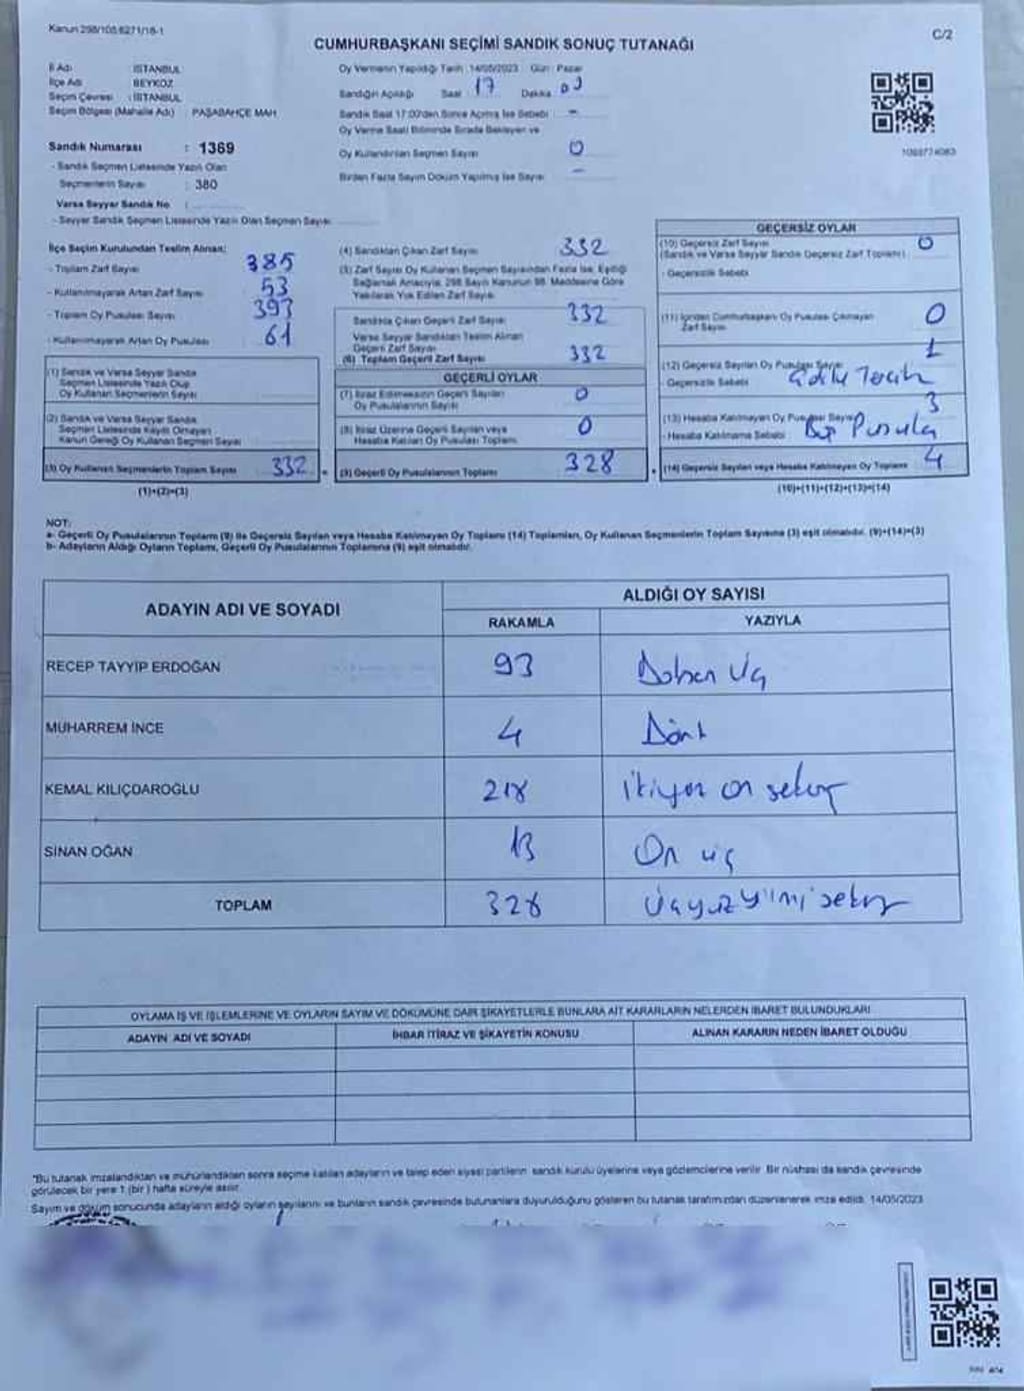 Kanun 298/105 6271/18-1
C/2
CUMHURBAŞKANI SEÇİMİ SANDIK SONUÇ TUTANAĞI
İl Adı : İSTANBUL
İlçe Adı : BEYKOZ
Seçim Çevresi : İSTANBUL
Seçim Bölgesi (Mahalle Adı) : PAŞABAHÇE MAH.
Sandık Numarası : 1369
- Sandık Seçmen Listesinde Yazılı Olan
Seçmenlerin Sayısı : 380
Varsa Seyyar Sandık No :
- Seyyar Sandık Seçmen Listesinde Yazılı Olan Seçmen Sayısı
Oy Vermenin Yapıldığı Tarih :14/05/2023 Gün : Pazar
Sandığın Açıldığı Saat : 17 Dakika :
Sandık Saat 17:00'den Sonra Açılmış İse Sebebi : -
Oy Verme Saati Bitiminde Sırada Bekleyen ve
Oy Kullandırılan Seçmen Sayısı : 0
Birden Fazla Sayım Döküm Yapılmış İse Sayısı : -
İlçe Seçim Kurulundan Teslim Alınan;
- Toplam Zarf Sayısı 385
- Kullanılmayarak Artan Zarf Sayısı 53
- Toplam Oy Pusulası Sayısı 393
- Kullanılmayarak Artan Oy Pusulası 61
(1) Sandık ve Varsa Seyyar Sandık
Seçmen Listesinde Yazılı Olup
Oy Kullanan Seçmenlerin Sayısı
(2) Sandık ve Varsa Seyyar Sandık
Seçmen Listesinde Kaydı Olmayan
Kanun Gereği Oy Kullanan Seçmen Sayısı
(3) Oy Kullanan Seçmenlerin Toplam Sayısı 332
(1)+(2)=(3)
(4) Sandıktan Çıkan Zarf Sayısı 332
(5) Zarf Sayısı Oy Kullanan Seçmen Sayısından Fazla İse, Eşitliği
Sağlamak Amacıyla, 298 Sayılı Kanunun 98. Maddesine Göre
Yakılarak Yok Edilen Zarf Sayısı
Sandıkta Çıkan Geçerli Zarf Sayısı 332
Varsa Seyyar Sandıktan Teslim Alınan
Geçerli Zarf Sayısı
(6) Toplam Geçerli Zarf Sayısı 332
GEÇERLİ OYLAR
(7) İtiraz Edilmeksizin Geçerli Sayılan
Oy Pusulalarının Sayısı 0
(8) İtiraz Üzerine Geçerli Sayılan veya
Hesaba Katılan Oy Pusulası Toplamı 0
(9) Geçerli Oy Pusulalarının Toplamı 328
GEÇERSİZ OYLAR
(10) Geçersiz Zarf Sayısı 0
(Sandık ve Varsa Seyyar Sandık Geçersiz Zarf Toplamı)
- Geçersizlik Sebebi
(11) İçinden Cumhurbaşkanı Oy Pusulası Çıkmayan
Zarf Sayısı 0
(12) Geçersiz Sayılan Oy Pusulası Sayısı 1
- Geçersizlik Sebebi Tercih
(13) Hesaba Katılmayan Oy Pusulası Sayısı 3
- Hesaba Katılmama Sebebi Pusula
(14) Geçersiz Sayılan veya Hesaba Katılmayan Oy Toplamı 4
(10)+(11)+(12)+(13)=(14)
NOT:
a- Geçerli Oy Pusulalarının Toplamı (9) ile Geçersiz Sayılan veya Hesaba Katılmayan Oy Toplamı (14) Toplamları, Oy Kullanan Seçmenlerin Toplam Sayısına (3) eşit olmalıdır. (9)+(14)=(3)
b- Adayların Aldığı Oyların Toplamı, Geçerli Oy Pusulalarının Toplamına (9) eşit olmalıdır.
ADAYIN ADI VE SOYADI
ALDIĞI OY SAYISI
RAKAMLA YAZIYLA
RECEP TAYYİP ERDOĞAN 93 Doksan üç
MUHARREM İNCE 4 Dört
KEMAL KILIÇDAROĞLU 218 ikiyüz on sekiz
SİNAN OĞAN 13 On üç
TOPLAM 328 Üçyüz yirmi sekiz
OYLAMA İŞ VE İŞLEMLERİNE VE OYLARIN SAYIM VE DÖKÜMÜNE DAİR ŞİKAYETLERLE BUNLARA AİT KARARLARIN NELERDEN İBARET BULUNDUKLARI
ADAYIN ADI VE SOYADI İHBAR İTİRAZ VE ŞİKAYETİN KONUSU ALINAN KARARIN NEDEN İBARET OLDUĞU
*Bu tutanak imzalandıktan ve mühürlendikten sonra seçime katılan adayların ve talep eden siyasi partilerin sandık kurulu üyelerine veya gözlemcilerine verilir. Bir nüshası da sandık çevresinde
görülecek bir yere 1 (bir) hafta süreyle asılır.
Sayım ve döküm sonucunda adayların aldığı oyların sayılarını ve bunların sandık çevresinde bulunanlara duyurulduğunu gösteren bu tutanak tarafımızdan düzenlenerek imza edildi. 14/05/2023